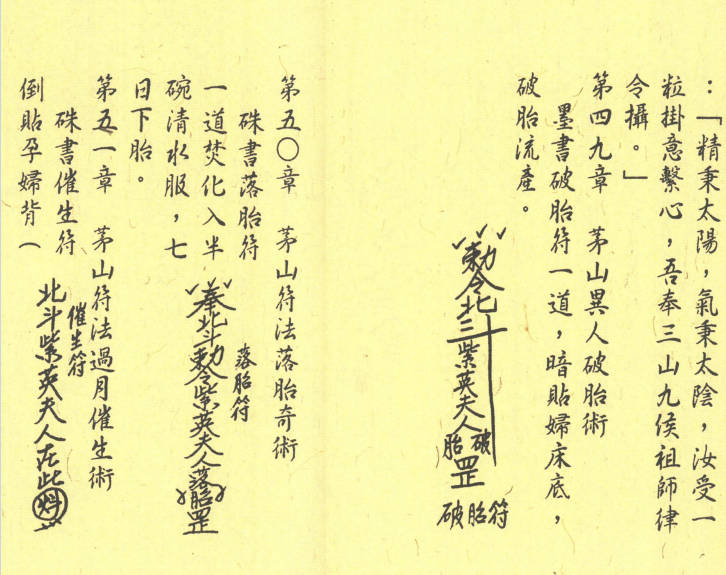 ：「精秉太陽，氣秉太陰，汝受一
粒掛意繫心，吾奉三山九侯祖師律
令攝。」
第四九章　茅山異人破胎術
墨書破胎符一道，暗貼婦床底，
破胎流產。
勅令北斗紫英夫人破胎罡
破胎符
第五〇章　茅山符法落胎奇術
硃書落胎符
一道焚化入半
碗清水服，七
日下胎。
落胎符
奉北斗勅令紫英夫人落胎罡
第五一章　茅山符法過月催生術
硃書催生符
倒貼孕婦背（
催生符
北斗紫英夫人在此